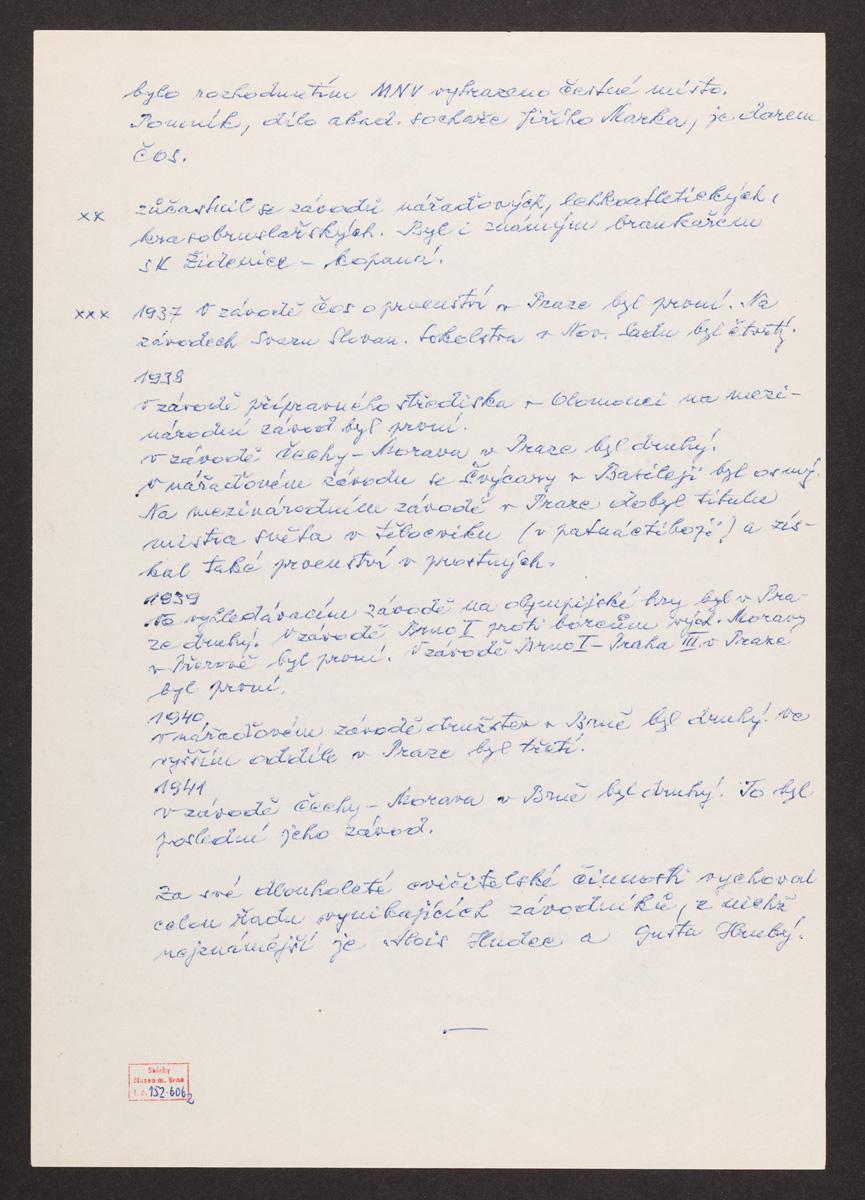 bylo rozhodnutím MNV vyhrazeno čestné místo.
Pomník, dílo akad. sochaře Jiřího Marka, je darem
ČOS.
xx zůčastnil se závodů nářaďových, lehkoatletických,
krasobruslařských. Byl i známým brankařem
SK Židenice – kopaná.
xxx 1937 V závodě ČOS o prvenství v Praze byl první. Na
závodech Svazu Slovan. Sokolstva v Nov. Sadu byl čtvrtý.
1938
V závodě přípravného střediska v Olomouci na mezi-
národní závod byl první.
V závodě Čechy – Morava v Praze byl druhý.
V nářaďovém závodu se Švýcary v Basileji byl osmý.
Na mezinárodním závodě v Praze dobyl titulu
mistra světa v tělocviku (v patnáctiboji) a zís-
kal také prvenství v prostných.
1939
Ve vyhledávacím závodě na olympijské hry byl v Pra-
ze druhý. V závodě Brno I proti borcům vých. Moravy
v Přerově byl první. V závodě Brno I – Praha III v Praze
byl první.
1940
V nářaďovém závodě družstev v Brně byl druhý. Ve
vyšším oddíle v Praze byl třetí.
1941
V závodě Čechy – Morava v Brně byl druhý. To byl
poslední jeho závod.
Za své dlouholeté cvičitelské činnosti vychoval
celou řadu vynikajících závodníků, z nichž
nejznámější je Alois Hudec a Gusta Hrubý.
Sbírky
Musea m. Brna
i. č. 152.606/2